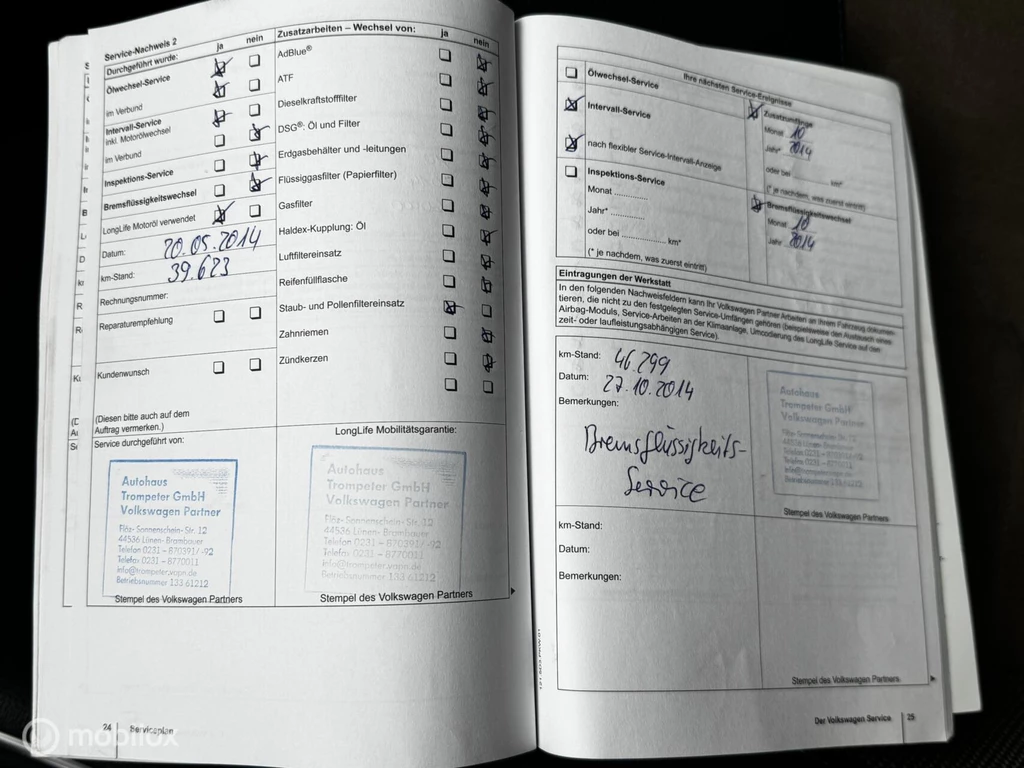 Service-Nachweis 2
ja nein
Durchgeführt wurde:
Ölwechsel-Service
im Verbund
Intervall-Service
inkl. Motorölwechsel
im Verbund
Inspektions-Service
Bremsflüssigkeitswechsel
LongLife Motoröl verwendet
Datum: 20.05.2014
km-Stand: 39.623
Rechnungsnummer:
Reparaturempfehlung
Kundenwunsch
(Diesen bitte auch auf dem
Auftrag vermerken.)
Service durchgeführt von:
Autohaus
Trompeter GmbH
Volkswagen Partner
Flöz-Sonnenschein-Str. 12
44536 Lünen-Brambauer
Telefon 0231 – 870391/-92
Telefax 0231 – 8770011
info@trompeter.vapn.de
Betriebsnummer 133 61212
Stempel des Volkswagen Partners
Zusatzarbeiten – Wechsel von: ja nein
AdBlue®
ATF
Dieselkraftstofffilter
DSG®: Öl und Filter
Erdgasbehälter und -leitungen
Flüssiggasfilter (Papierfilter)
Gasfilter
Haldex-Kupplung: Öl
Luftfiltereinsatz
Reifenfüllflasche
Staub- und Pollenfiltereinsatz
Zahnriemen
Zündkerzen
LongLife Mobilitätsgarantie:
Autohaus
Trompeter GmbH
Volkswagen Partner
Flöz-Sonnenschein-Str. 12
44536 Lünen-Brambauer
Telefon 0231 – 870391/-92
Telefax 0231 – 8770011
info@trompeter.vapn.de
Betriebsnummer 133 61212
Stempel des Volkswagen Partners
24 Serviceplan
Ihre nächsten Service-Ereignisse
Ölwechsel-Service
Intervall-Service
nach flexibler Service-Intervall-Anzeige
Inspektions-Service
Monat ..............
Jahr* ..............
oder bei .................. km*
(* je nachdem, was zuerst eintritt)
Zusatzumfänge
Monat 10
Jahr* 2014
oder bei .............. km*
(* je nachdem, was zuerst eintritt)
Bremsflüssigkeitswechsel
Monat 10
Jahr 2014
Eintragungen der Werkstatt
In den folgenden Nachweisfeldern kann Ihr Volkswagen Partner Arbeiten an Ihrem Fahrzeug dokumen-
tieren, die nicht zu den festgelegten Service-Umfängen gehören (beispielsweise den Austausch eines
Airbag-Moduls, Service-Arbeiten an der Klimaanlage, Umcodierung des LongLife Service auf den
zeit- oder laufleistungsabhängigen Service).
km-Stand: 46.299
Datum: 27.10.2014
Bemerkungen:
Bremsflüssigkeits-
Service
Autohaus
Trompeter GmbH
Volkswagen Partner
Stempel des Volkswagen Partners
km-Stand:
Datum:
Bemerkungen:
Stempel des Volkswagen Partners
Der Volkswagen Service 25
mobilox